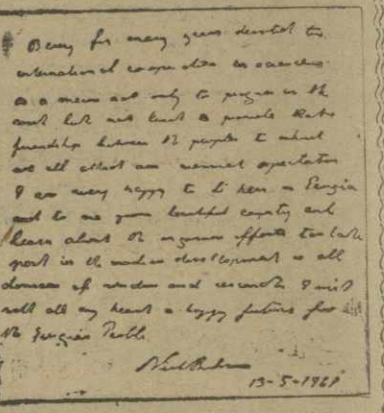 Being for many years devoted to
international co-operation in sciences
as a means not only to progress in the
but not least to promote
friendship between the peoples to which
we all attach our
I am very happy to be here in Georgia
and to see your beautiful country and
learn about the vigorous efforts to take
part in the modern development in all
domains of and research. I wish
with all my heart a happy future for
the Georgian People
Niels Bohr
13-5-1961